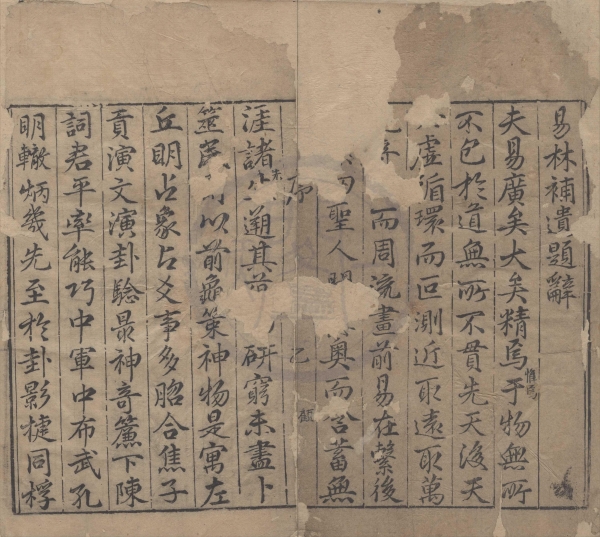 易林補遺題辭
夫易廣矣大矣精焉于物無所
不包於道無所不貫先天後天
虛循環而叵測近取遠取萬
而周流畫前易在繫後
聖人奧而含蓄無
序
乙
涯諸遡其 研窮未盡卜
筮 以前龜策神物是寓左
丘明占象占爻事多昭合焦子
貢演文演卦驗最神奇簾下陳
詞君平率能巧中軍中布武孔
明轍炳幾先至於卦影捷同桴